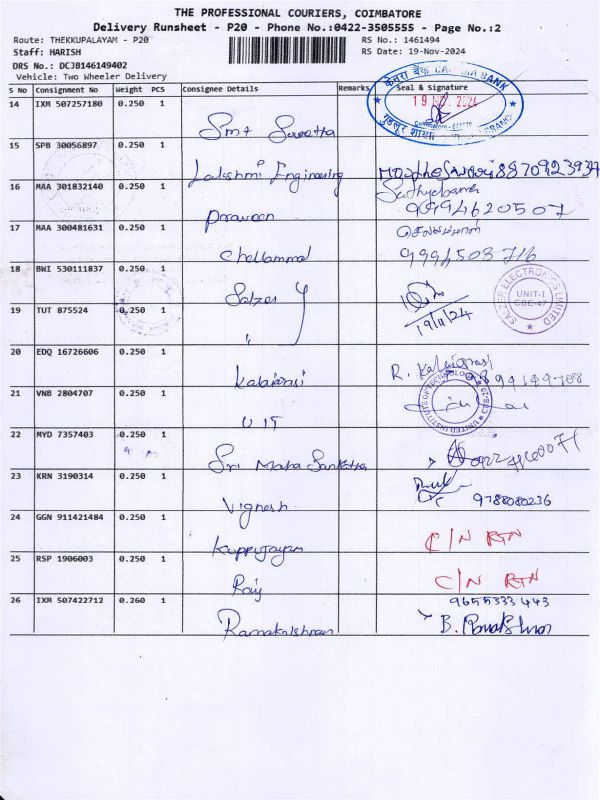 THE PROFESSIONAL COURIERS, COIMBATORE
Delivery Runsheet - P20 - Phone No.:0422-3505555 - Page No.:2
Route: THEKKUPALAYAM - P20
RS No.: 1461494
Staff: HARISH
RS Date: 19-Nov-2024
DRS No.: DCJB146149402
Vehicle: Two Wheeler Delivery
S No Consignment No Weight PCS Consignee Details Remarks Seal & Signature
14 IXM 507257180 0.250 1
केनरा बैंक CANARA BANK
19 NOV 2024
15 SPB 30056897 0.250 1 Lakshmi Engineering
16 MAA 301832140 0.250 1 Praveen
Sathyabama
9994620507
17 MAA 300481631 0.250 1 Chellammal
செல்லம்மாள்
9994503716
18 BWI 530111837 0.250 1 Salzer
19/11/24
SALZER ELECTRONICS LIMITED
UNIT-I
CBE-47
19 TUT 875524 0.250 1 "
20 EDQ 16726606 0.250 1 Kalaiarasi
R. Kalaiarasi
21 VNB 2804707 0.250 1 UIT
UNITED INSTITUTE OF TECHNOLOGY
22 MYD 7357403 0.250 1 Sri Maha
23 KRN 3190314 0.250 1 Vignesh
9788080236
24 GGN 911421484 0.250 1
C/N RTN
25 RSP 1906003 0.250 1 Raij
C/N RTN
26 IXM 507422712 0.260 1 Ramakrishnan
9655333443